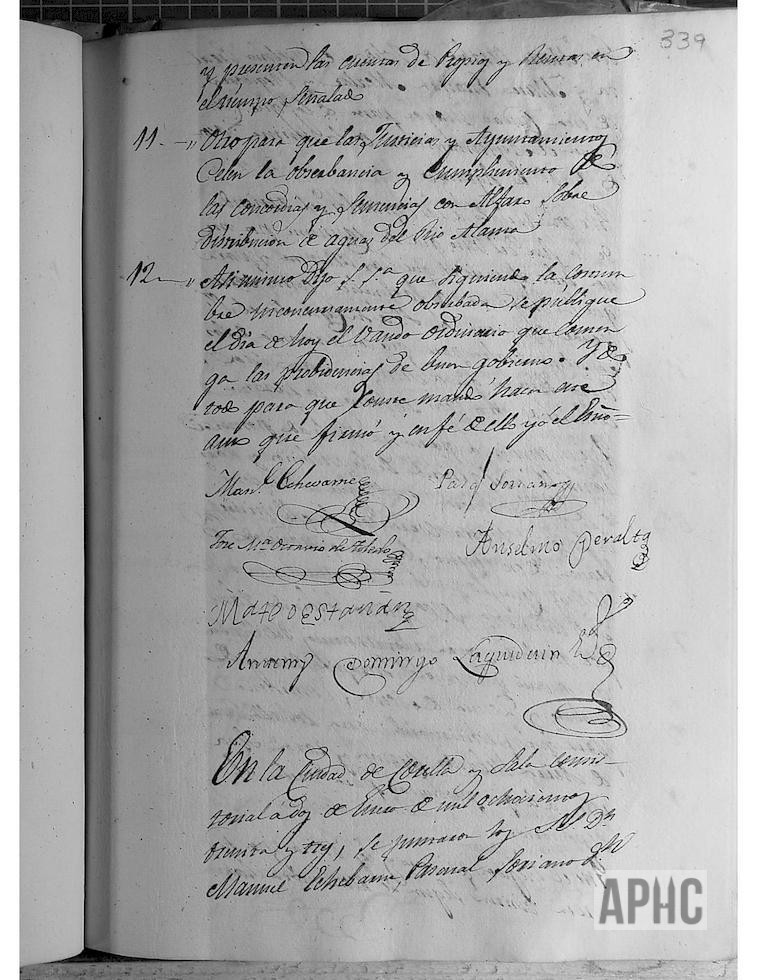 339
y presenten las cuentas de Propios y Rentas en
el tiempo señalado
11. — " Otro para que las Justicias y Ayuntamientos
Celen la obserbancia y Cumplimiento de
las concordias y Sentencias con Alfaro sobre
distribucion de aguas del Rio Alama
12 — " Asi mismo Dijo S. Sª que siguiendo la Costum
bre inconcusamente obserbada se publique
el dia de hoy el Vando ordinario que conten
ga las probidencias de buen gobierno. Y de
todo para que Conste mandó hacer este
auto que firmó y en fé de ello yo el Esño =
Manl. Echevarne
Pasql Soriano
José Mª Octavio de Toledo
Anselmo Peralta
Mateo Estañán
Antemy Domingo Laquidain
En la Ciudad de Corella y Sala consis-
torial a dos de Enero de mil ochocientos
treinta y tres, se juntaron los SS. Dn
Manuel Echebarne, Pascual Soriano Dn
APHC